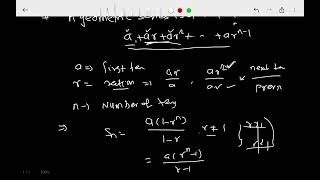 n geometric series
a + ar + ar² + - - + arⁿ⁻¹
a ⇒ first ten
r = ration ⇒ ar/a , ar²/ar , next ten/prevn
n → Number of tey
⇒ Sn = a(1-rⁿ)/1-r , r ≠ 1
= a(rⁿ-1)/r-1